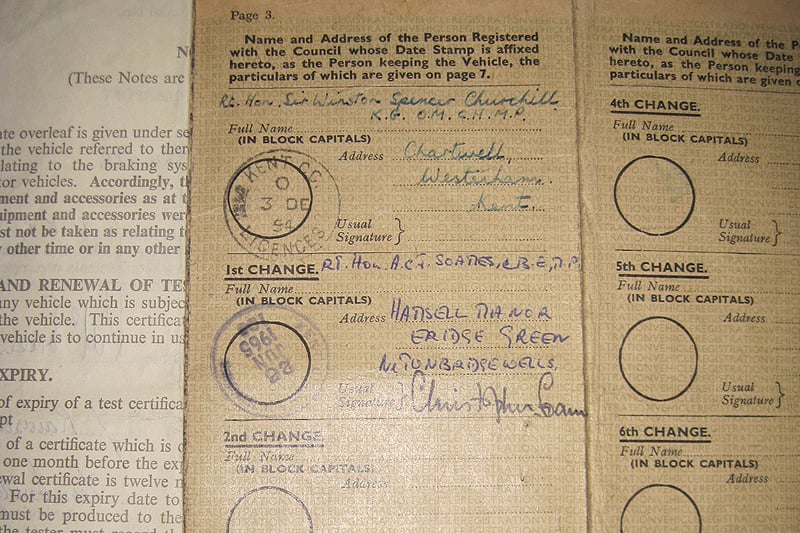 N
(These Notes are
ate overleaf is given under se
the vehicle referred to ther
lating to the braking sys
or vehicles. Accordingly, t
ment and accessories as at t
uipment and accessories wer
st not be taken as relating t
other time or in any other
AND RENEWAL OF TE
any vehicle which is subjec
the vehicle. This certifica
vehicle is to continue in us
XPIRY.
of expiry of a test certifica
pt
of a certificate which is
one month before the ex
wal certificate is twelve
For this expiry date to
must be produced to the
the tester must record th
Page 3.
Name and Address of the Person Registered
with the Council whose Date Stamp is affixed
hereto, as the Person keeping the Vehicle, the
particulars of which are given on page 7.
Rt. Hon. Sir Winston Spencer Churchill
K.G. O.M. C.H. M.P.
Full Name
(IN BLOCK CAPITALS)
Address Chartwell,
Westerham.
Kent.
KENT C.C.
3 DE
54
LICENCES
Usual
Signature
1st CHANGE. Rt. Hon. A.C.J. SOAMES, C.B.E, M.P.
Full Name
(IN BLOCK CAPITALS)
Address HAMSELL MANOR
ERIDGE GREEN
Nr TONBRIDGE WELLS.
28
JUN
1965
Usual
Signature Christopher Soames
2nd CHANGE.
Full Name
(IN BLOCK CAPITALS)
Address
Name and Address of the P
with the Council whose Date
hereto, as the Person keeping
particulars of which are given o
4th CHANGE.
Full Name
(IN BLOCK CAPITALS)
Address
Usual
Signature
5th CHANGE.
Full Name
(IN BLOCK CAPITALS)
Address
Usual
Signature
6th CHANGE.
Full Name
(IN BLOCK CAPITALS)
Address